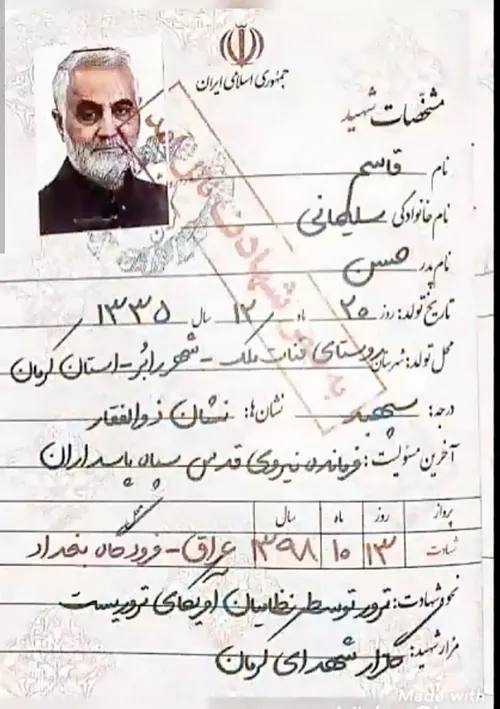 جمهوری اسلامی ایران
مشخصات شهید
نام قاسم
نام خانوادگی سلیمانی
نام پدر حسن
تاریخ تولد: روز ۲۰ ماه ۱۲ سال ۱۳۳۵
محل تولد: شهرستان روستای قنات ملک - شهر رابُر - استان کرمان
درجه: سپهبد نشان‌ها: نشان ذوالفقار
آخرین مسئولیت: فرمانده نیروی قدس سپاه پاسداران
پرواز روز ماه سال
شهادت ۱۳ ۱۰ ۱۳۹۸ عراق - فرودگاه بغداد
نحوه شهادت: ترور توسط نظامیان آمریکای تروریست
مزار شهید: گلزار شهدای کرمان
به فیض شهادت نائل
Made with